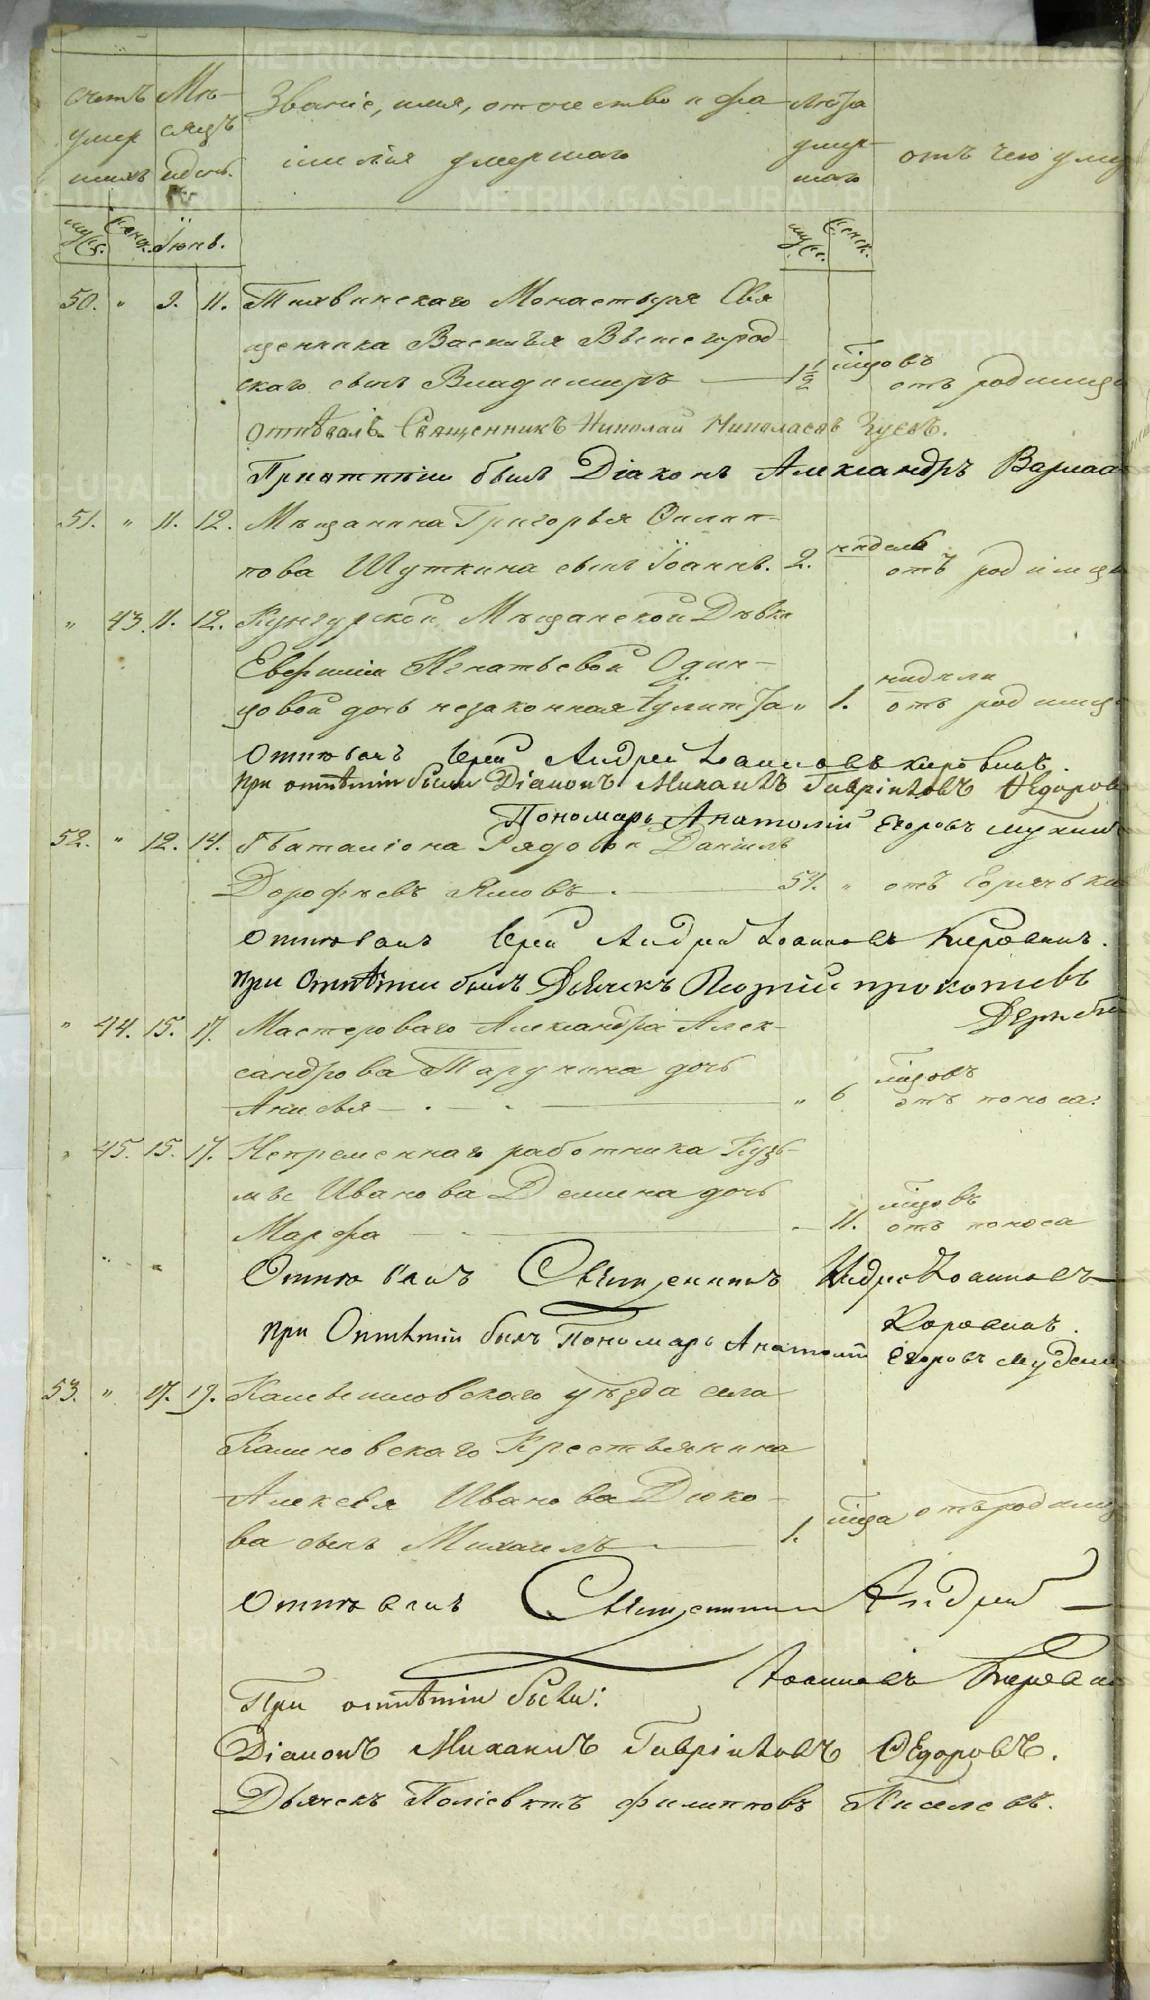 счетъ умер шихъ
Мѣ- сяцъ и день.
Званіе, имя, отчество и фа- милія умершаго
Лѣта умер- шаго
отъ чего уме
муж. женск. Іюнь. муж. женск.
50. " 9. 11. Тихвинскаго Монастыря Свя
щенника Василья Вышегород-
скаго сынъ Владимиръ — 1 1/2 годовъ отъ родимца
Отпѣвалъ Священникъ Николай Николаевъ
При отпѣтіи былъ Діаконъ Александръ
51. " 11. 12. Мѣщанина Григорья Филип-
пова Шуткина сынъ Іоаннъ. 2. недель отъ родимца
" 43. 11. 12. Кунгурской Мѣщанской Дѣвки
Евфиміи Игнатьевой Один-
цовой дочь незаконная Улитта " 1. недели отъ родимца
Отпѣвалъ Іерей Андрей Іоанновъ Коровинъ.
При отпѣтіи были Діаконъ Михаилъ Гавріиловъ Ѳедоровъ
Пономарь Анатолій Егоровъ
52. " 12. 14. Баталіона Рядовой Даніилъ
Дорофѣевъ Ямовъ. — 54. " отъ горячки
Отпѣвалъ Іерей Андрей Іоанновъ Коровинъ.
При Отпѣтіи былъ Дьячекъ Прокопьевъ
" 44. 15. 17. Мастероваго Александра Алек-
сандрова Тарунина дочь
Анисья — " 6 годовъ отъ поноса.
" 45. 15. 17. Непременнаго работника Кузь-
мы Иванова Демина дочь
Марфа — 11. годовъ отъ поноса
Отпѣвалъ Священникъ Андрей Іоанновъ
Коровинъ.
при Отпѣтіи былъ Пономарь Анатолій Егоровъ
53. " 17. 19. Камышловскаго уѣзда села
Калиновскаго Крестьянина
Алексѣя Иванова Дюко-
ва сынъ Михаилъ — 1. года отъ родимца
Отпѣвалъ Священникъ Андрей —
Іоанновъ Коровинъ
При отпѣтіи были:
Діаконъ Михаилъ Гавріиловъ Ѳедоровъ.
Дьячекъ Поліевктъ Филипповъ Киселевъ.
METRIKI.GASO-URAL.RU